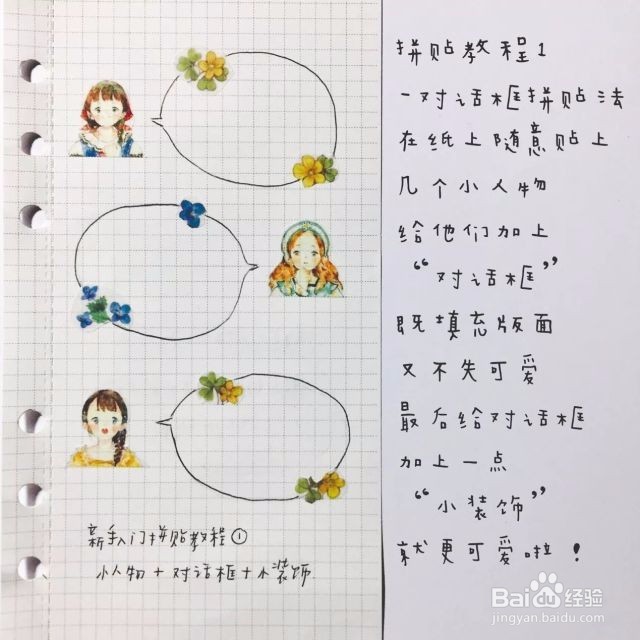 新手入门拼贴教程①
小人物+对话框+小装饰
拼贴教程1
-对话框拼贴法
在纸上随意贴上
几个小人物
给他们加上
“对话框”
既填充版面
又不失可爱
最后给对话框
加上一点
“小装饰”
就更可爱啦!
Baidu经验
jingyan.baidu.com